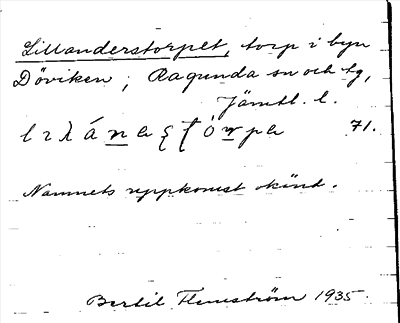 Lillanderstorpet, torp i byn
Döviken; Ragunda sn och tg,
Jämtl. l.
71.
Namnets uppkomst okänd.
Bertil Flemström 1935.